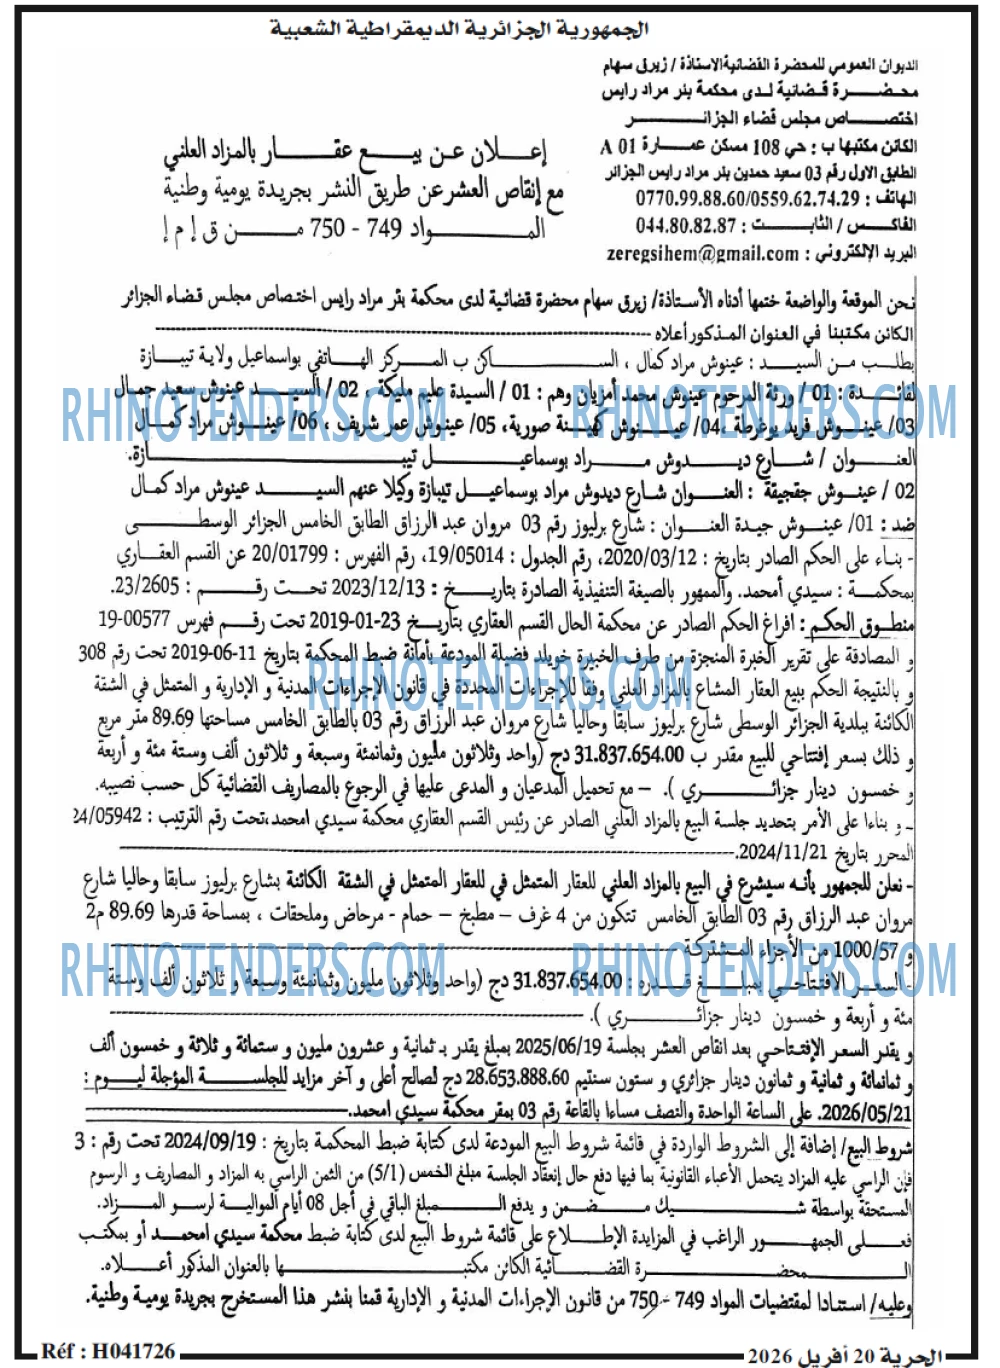 الجمهورية الجزائرية الديمقراطية الشعبية
الديوان العمومي للمحضرة القضائية الاستاذة / زيرق سهام
محضرة قضائية لدى محكمة بئر مراد رايس
اختصاص مجلس قضاء الجزائر
الكائن مكتبها ب : حي 108 مسكن عمارة A 01
الطابق الاول رقم 03 سعيد حمدين بئر مراد رايس الجزائر
الهاتف : 0770.99.88.60/0559.62.74.29
الفاكس / الثابت : 044.80.82.87
البريد الإلكتروني : zeregsihem@gmail.com
إعلان عن بيع عقار بالمزاد العلني
مع إنقاص العشر عن طريق النشر بجريدة يومية وطنية
المواد 749 - 750 من ق إ م إ
نحن الموقعة والواضعة ختمها أدناه الأستاذة/ زيرق سهام محضرة قضائية لدى محكمة بئر مراد رايس اختصاص مجلس قضاء الجزائر
الكائن مكتبنا في العنوان المذكور أعلاه
بطلب من السيد : عينوش مراد كمال ، الساكن ب المركز الهاتفي بواسماعيل ولاية تيبازة
لفائدة : 01 / ورثة المرحوم عينوش محمد أمزيان وهم : 01 / السيدة عليم مليكة ، 02 / السيد عينوش سعيد جمال
03/ عينوش فريد يوغرطة ،04/ عينوش كهينة صورية، 05/ عينوش عمر شريف ، 06/ عينوش مراد كمال
العنوان / شارع ديدوش مراد بوسماعيل تيبازة.
02 / عينوش جقجيقة : العنوان شارع ديدوش مراد بوسماعيل تيبازة وكيلا عنهم السيد عينوش مراد كمال
ضد : 01/ عينوش جيدة العنوان : شارع برليوز رقم 03 مروان عبد الرزاق الطابق الخامس الجزائر الوسطى
- بناء على الحكم الصادر بتاريخ : 2020/03/12، رقم الجدول : 19/05014، رقم الفهرس : 20/01799 عن القسم العقاري
بمحكمة : سيدي أمحمد. والممهور بالصيغة التنفيذية الصادرة بتاريخ : 2023/12/13 تحت رقم : 23/2605.
منطوق الحكم : افراغ الحكم الصادر عن محكمة الحال القسم العقاري بتاريخ 23-01-2019 تحت رقم فهرس 00577-19
و المصادقة على تقرير الخبرة المنجزة من طرف الخبيرة خويلد فضيلة المودعة بأمانة ضبط المحكمة بتاريخ 11-06-2019 تحت رقم 308
و بالنتيجة الحكم ببيع العقار المشاع بالمزاد العلني وفقا للإجراءات المحددة في قانون الإجراءات المدنية و الإدارية و المتمثل في الشقة
الكائنة ببلدية الجزائر الوسطى شارع برليوز سابقا وحاليا شارع مروان عبد الرزاق رقم 03 بالطابق الخامس مساحتها 89.69 متر مربع
و ذلك بسعر إفتتاحي للبيع مقدر ب 31.837.654.00 دج (واحد وثلاثون مليون وثمانمئة وسبعة و ثلاثون ألف وستة مئة و أربعة
و خمسون دينار جزائري ). – مع تحميل المدعيان و المدعى عليها في الرجوع بالمصاريف القضائية كل حسب نصيبه.
ـ و بناءا على الأمر بتحديد جلسة البيع بالمزاد العلني الصادر عن رئيس القسم العقاري محكمة سيدي امحمد،تحت رقم الترتيب : 24/05942
المحرر بتاريخ 2024/11/21.
- نعلن للجمهور بأنه سيشرع في البيع بالمزاد العلني للعقار المتمثل في للعقار المتمثل في الشقة الكائنة بشارع برليوز سابقا وحاليا شارع
مروان عبد الرزاق رقم 03 الطابق الخامس تتكون من 4 غرف – مطبخ – حمام - مرحاض وملحقات ، بمساحة قدرها 89.69 م2
و 1000/57 من الأجزاء المشتركة
- السعر الافتتاحي بمبلغ قدره : 31.837.654.00 دج (واحد وثلاثون مليون وثمانمئة وسبعة و ثلاثون ألف وستة
مئة و أربعة و خمسون دينار جزائري ).
و يقدر السعر الإفتتاحي بعد انقاص العشر بجلسة 2025/06/19 بمبلغ يقدر بـ ثمانية و عشرون مليون و ستمائة و ثلاثة و خمسون ألف
و ثمانمائة و ثمانية و ثمانون دينار جزائري و ستون سنتيم 28.653.888.60 دج لصالح أعلى و آخر مزايد للجلسة المؤجلة ليوم :
2026/05/21. على الساعة الواحدة والنصف مساءا بالقاعة رقم 03 بمقر محكمة سيدي امحمد.
شروط البيع/ إضافة إلى الشروط الواردة في قائمة شروط البيع المودعة لدى كتابة ضبط المحكمة بتاريخ : 2024/09/19 تحت رقم : 3
فإن الراسي عليه المزاد يتحمل الأعباء القانونية بما فيها دفع حال إنعقاد الجلسة مبلغ الخمس (5/1) من الثمن الراسي به المزاد و المصاريف و الرسوم
المستحقة بواسطة شيك مضمن و يدفع المبلغ الباقي في أجل 08 أيام الموالية لرسو المزاد.
فعلى الجمهور الراغب في المزايدة الإطلاع على قائمة شروط البيع لدى كتابة ضبط محكمة سيدي امحمد أو بمكتب
المحضرة القضائية الكائن مكتبها بالعنوان المذكور أعلاه.
وعليه/ استنادا لمقتضيات المواد 749 - 750 من قانون الإجراءات المدنية و الإدارية قمنا بنشر هذا المستخرج بجريدة يومية وطنية.
الحرية 20 أفريل 2026
Réf : H041726
RHINOTENDERS.COM
RHINOTENDERS.COM
RHINOTENDERS.COM
RHINOTENDERS.COM
RHINOTENDERS.COM